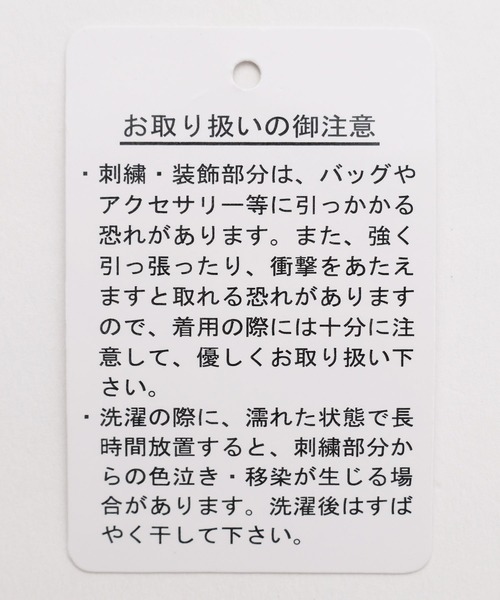 お取り扱いの御注意
・刺繍・装飾部分は、バッグや
アクセサリー等に引っかかる
恐れがあります。また、強く
引っ張ったり、衝撃をあたえ
ますと取れる恐れがあります
ので、着用の際には十分に注
意して、優しくお取り扱い下
さい。
・洗濯の際に、濡れた状態で長
時間放置すると、刺繍部分か
らの色泣き・移染が生じる場
合があります。洗濯後はすば
やく干して下さい。